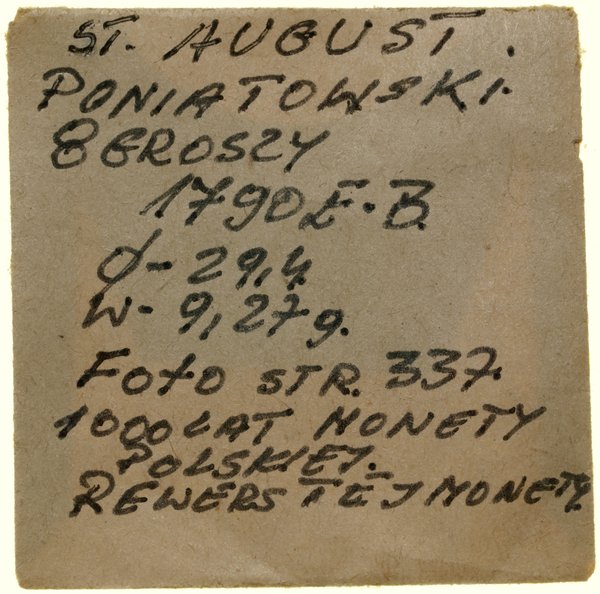 ST. AUGUST.
PONIATOWSKI.
8 GROSZY
1790 E.B.
Ø - 29,4.
W - 9,27 g.
FOTO STR. 337.
1000 LAT MONETY
POLSKIEJ.
REWERS TEJ MONETY.